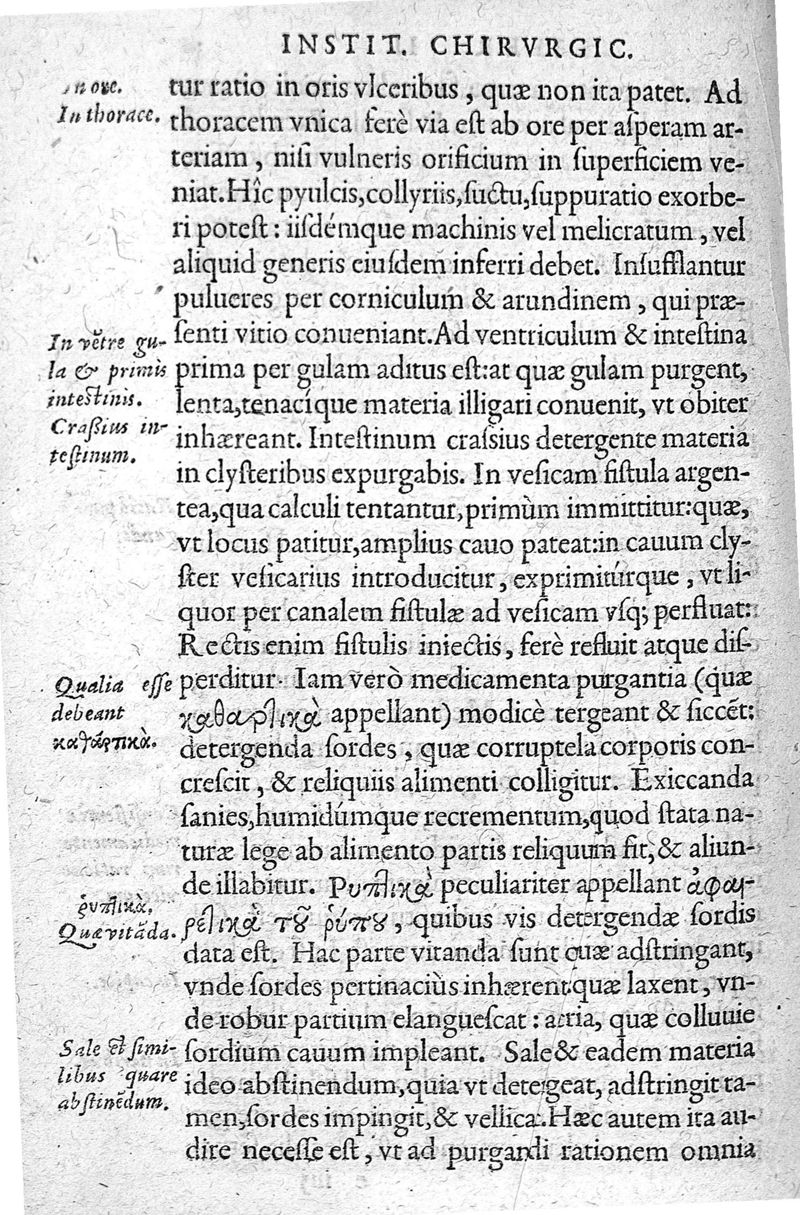 INSTIT. CHIRVRGIC.
In ore.
In thorace.
tur ratio in oris vlceribus, quæ non ita patet. Ad
thoracem vnica ferè via eſt ab ore per aſperam ar-
teriam, niſi vulneris orificium in ſuperficiem ve-
niat. Hîc pyulcis, collyriis, ſuctu, ſuppuratio exorbe-
ri poteſt: iiſdémque machinis vel melicratum, vel
aliquid generis eiuſdem inferri debet. Inſufflantur
pulueres per corniculum & arundinem, qui præ-
In vẽtre gu-
la & primis
inteſtinis.
Craßius in-
teſtinum.
ſenti vitio conueniant. Ad ventriculum & inteſtina
prima per gulam aditus eſt: at quæ gulam purgent,
lenta, tenacique materia illigari conuenit, vt obiter
inhæreant. Inteſtinum craſsius detergente materia
in clyſteribus expurgabis. In veſicam fiſtula argen-
tea, qua calculi tentantur, primùm immittitur: quæ,
vt locus patitur, amplius cauo pateat: in cauum cly-
ſter veſicarius introducitur, exprimitúrque, vt li-
quor per canalem fiſtulæ ad veſicam vſq; perfluat:
Rectis enim fiſtulis iniectis, ferè refluit atque diſ-
Qualia eſſe
debeant
καθαρτικὰ.
perditur. Iam verò medicamenta purgantia (quæ
καθαρτικὰ appellant) modicè tergeant & ſiccẽt:
detergenda ſordes, quæ corruptela corporis con-
creſcit, & reliquiis alimenti colligitur. Exiccanda
ſanies, humidúmque recrementum, quod ſtata na-
turæ lege ab alimento partis reliquum fit, & aliun-
ῥυπτικὰ.
Quæ vitãda.
de illabitur. Ρυπτικὰ peculiariter appellant ἀφαι-
ρετικὰ τοῦ ῥύπου, quibus vis detergendæ ſordis
data eſt. Hac parte vitanda ſunt quæ adſtringant,
vnde ſordes pertinaciùs inhærent: quæ laxent, vn-
de robur partium elangueſcat: acria, quæ colluuie
Sale & ſimi-
libus quare
abſtinẽdum.
ſordium cauum impleant. Sale & eadem materia
ideo abſtinendum, quia vt detergeat, adſtringit ta-
men, ſordes impingit, & vellicat. Hæc autem ita au-
dire neceſſe eſt, vt ad purgandi rationem omnia